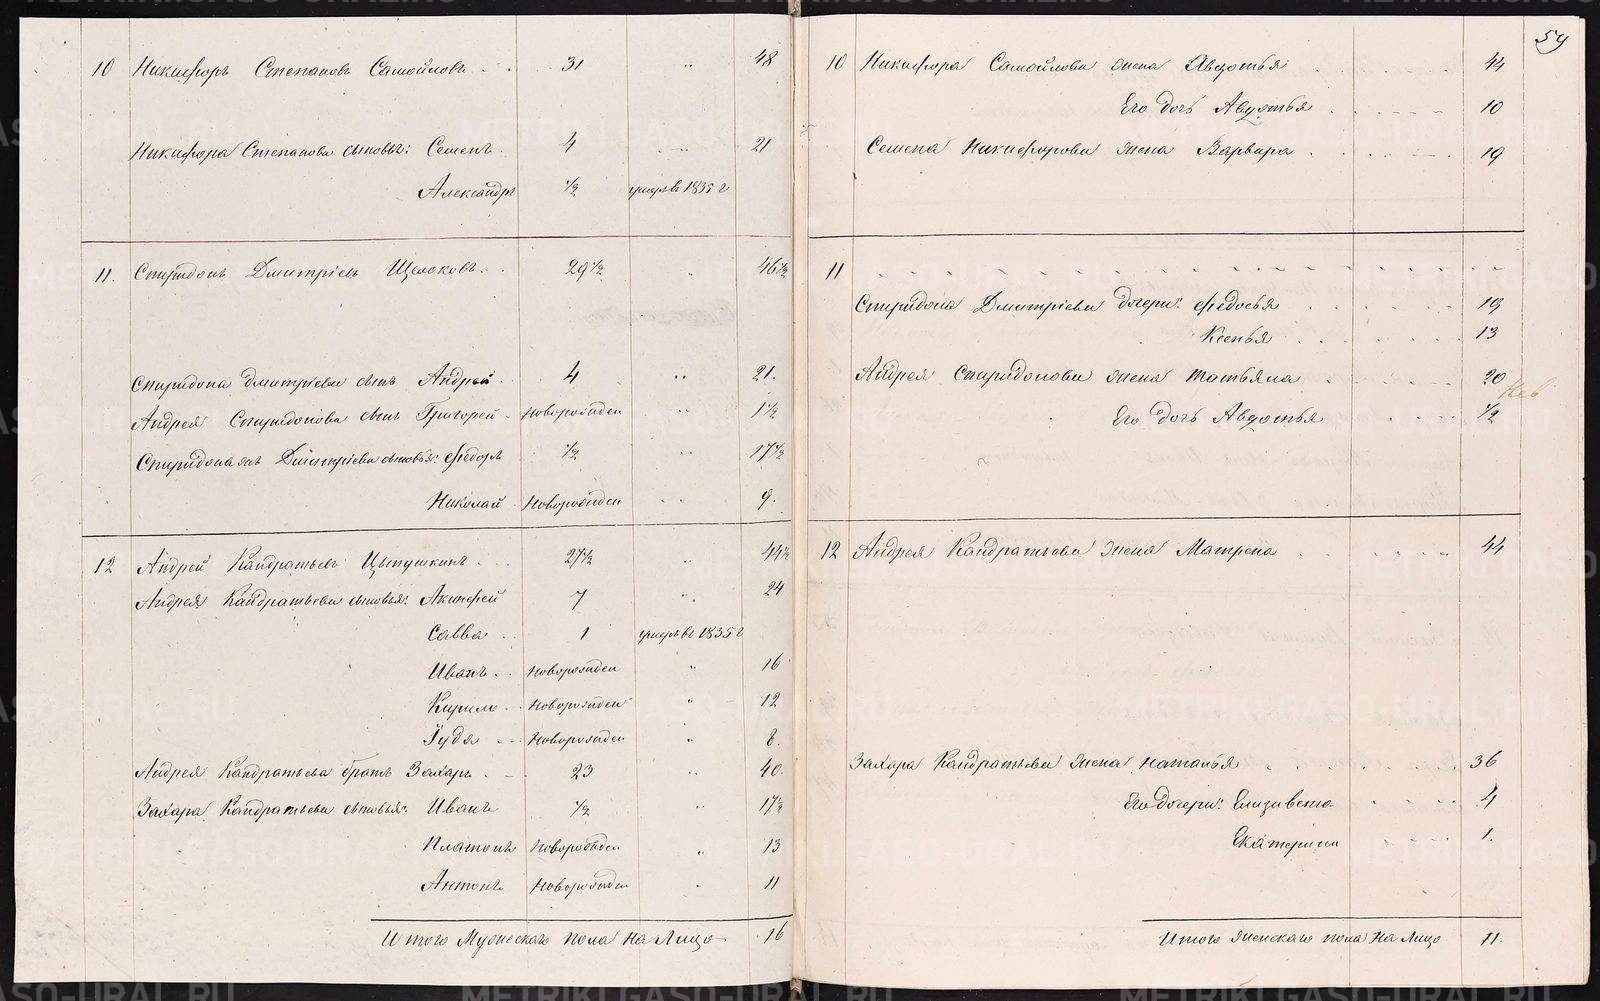 59
10 Никифоръ Степановъ Самойловъ . . 31 " 48
Никифора Степанова сыновья: Семенъ . 4 " 21
Александръ ½ умеръ въ 1835 г
11. Спиридонъ Дмитріевъ Щелоковъ . . 29½ " 46½
Спиридона Дмитріева сынъ Андрей . 4 " 21.
Андрея Спиридонова сынъ Григорей . новорожден " 1½
Спиридона Дмитріева сыновья: Федоръ ½ " 17½
Николай Новорожден " 9.
12 Андрей Кандратьевъ Цыпушкинъ . . . 27½ " 44½
Андрея Кандратьева сыновья: Акинфей 7 " 24
Савва . 1 умеръ въ 1835 г
Иванъ . . новорожден " 16
Кирило . . новорожден " 12
Іуда . . . новорожден " 8.
Андрея Кандратьева братъ Захаръ . . 23 " 40.
Захара Кандратьева сыновья: Иванъ ½ " 17½
Платонъ новорожден " 13
Антонъ новорожден " 11
Итого Мужескаго пола на Лицо 16
10 Никифора Самойлова жена Авдотья 44
Его дочь Авдотья 10
Семена Никифорова жена Варвара 19
11
Спиридона Дмитріева дочери: Федосья 19
Ксенья 13
Андрея Спиридонова жена Татьяна 20
Его дочь Авдотья ½
12 Андрея Кандратьева жена Матрена 44
Захара Кандратьева жена Наталья 36
Его дочери: Елизавета 4
Екатерина 1.
Итого женскаго пола на Лицо 11.
METRIKI.GASO-URAL.RU